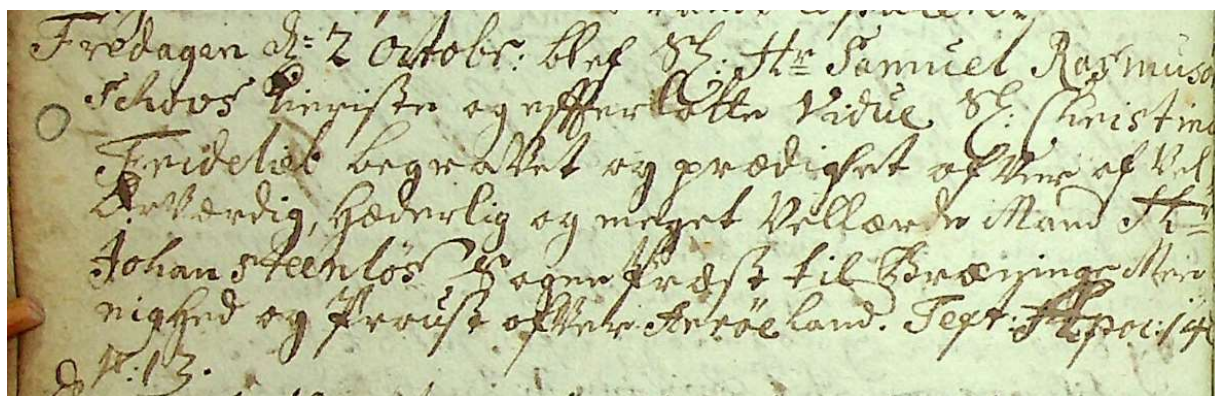 Fredagen d: 2 Octobr: blef Sl: Hr Samuel Rasmus
Schovs kieriste og effterlatte Vidue Sl: Christina
Fridelieb begravet og prædighet ofver af Vel
Ærværdig, Hæderlig og meget Vellærde Mand Hr
Johan Steenløs Sognepræst til Brænings Mee
nighed og Proust ofver Arröe land. Text: Apoc: 14
v: 13.